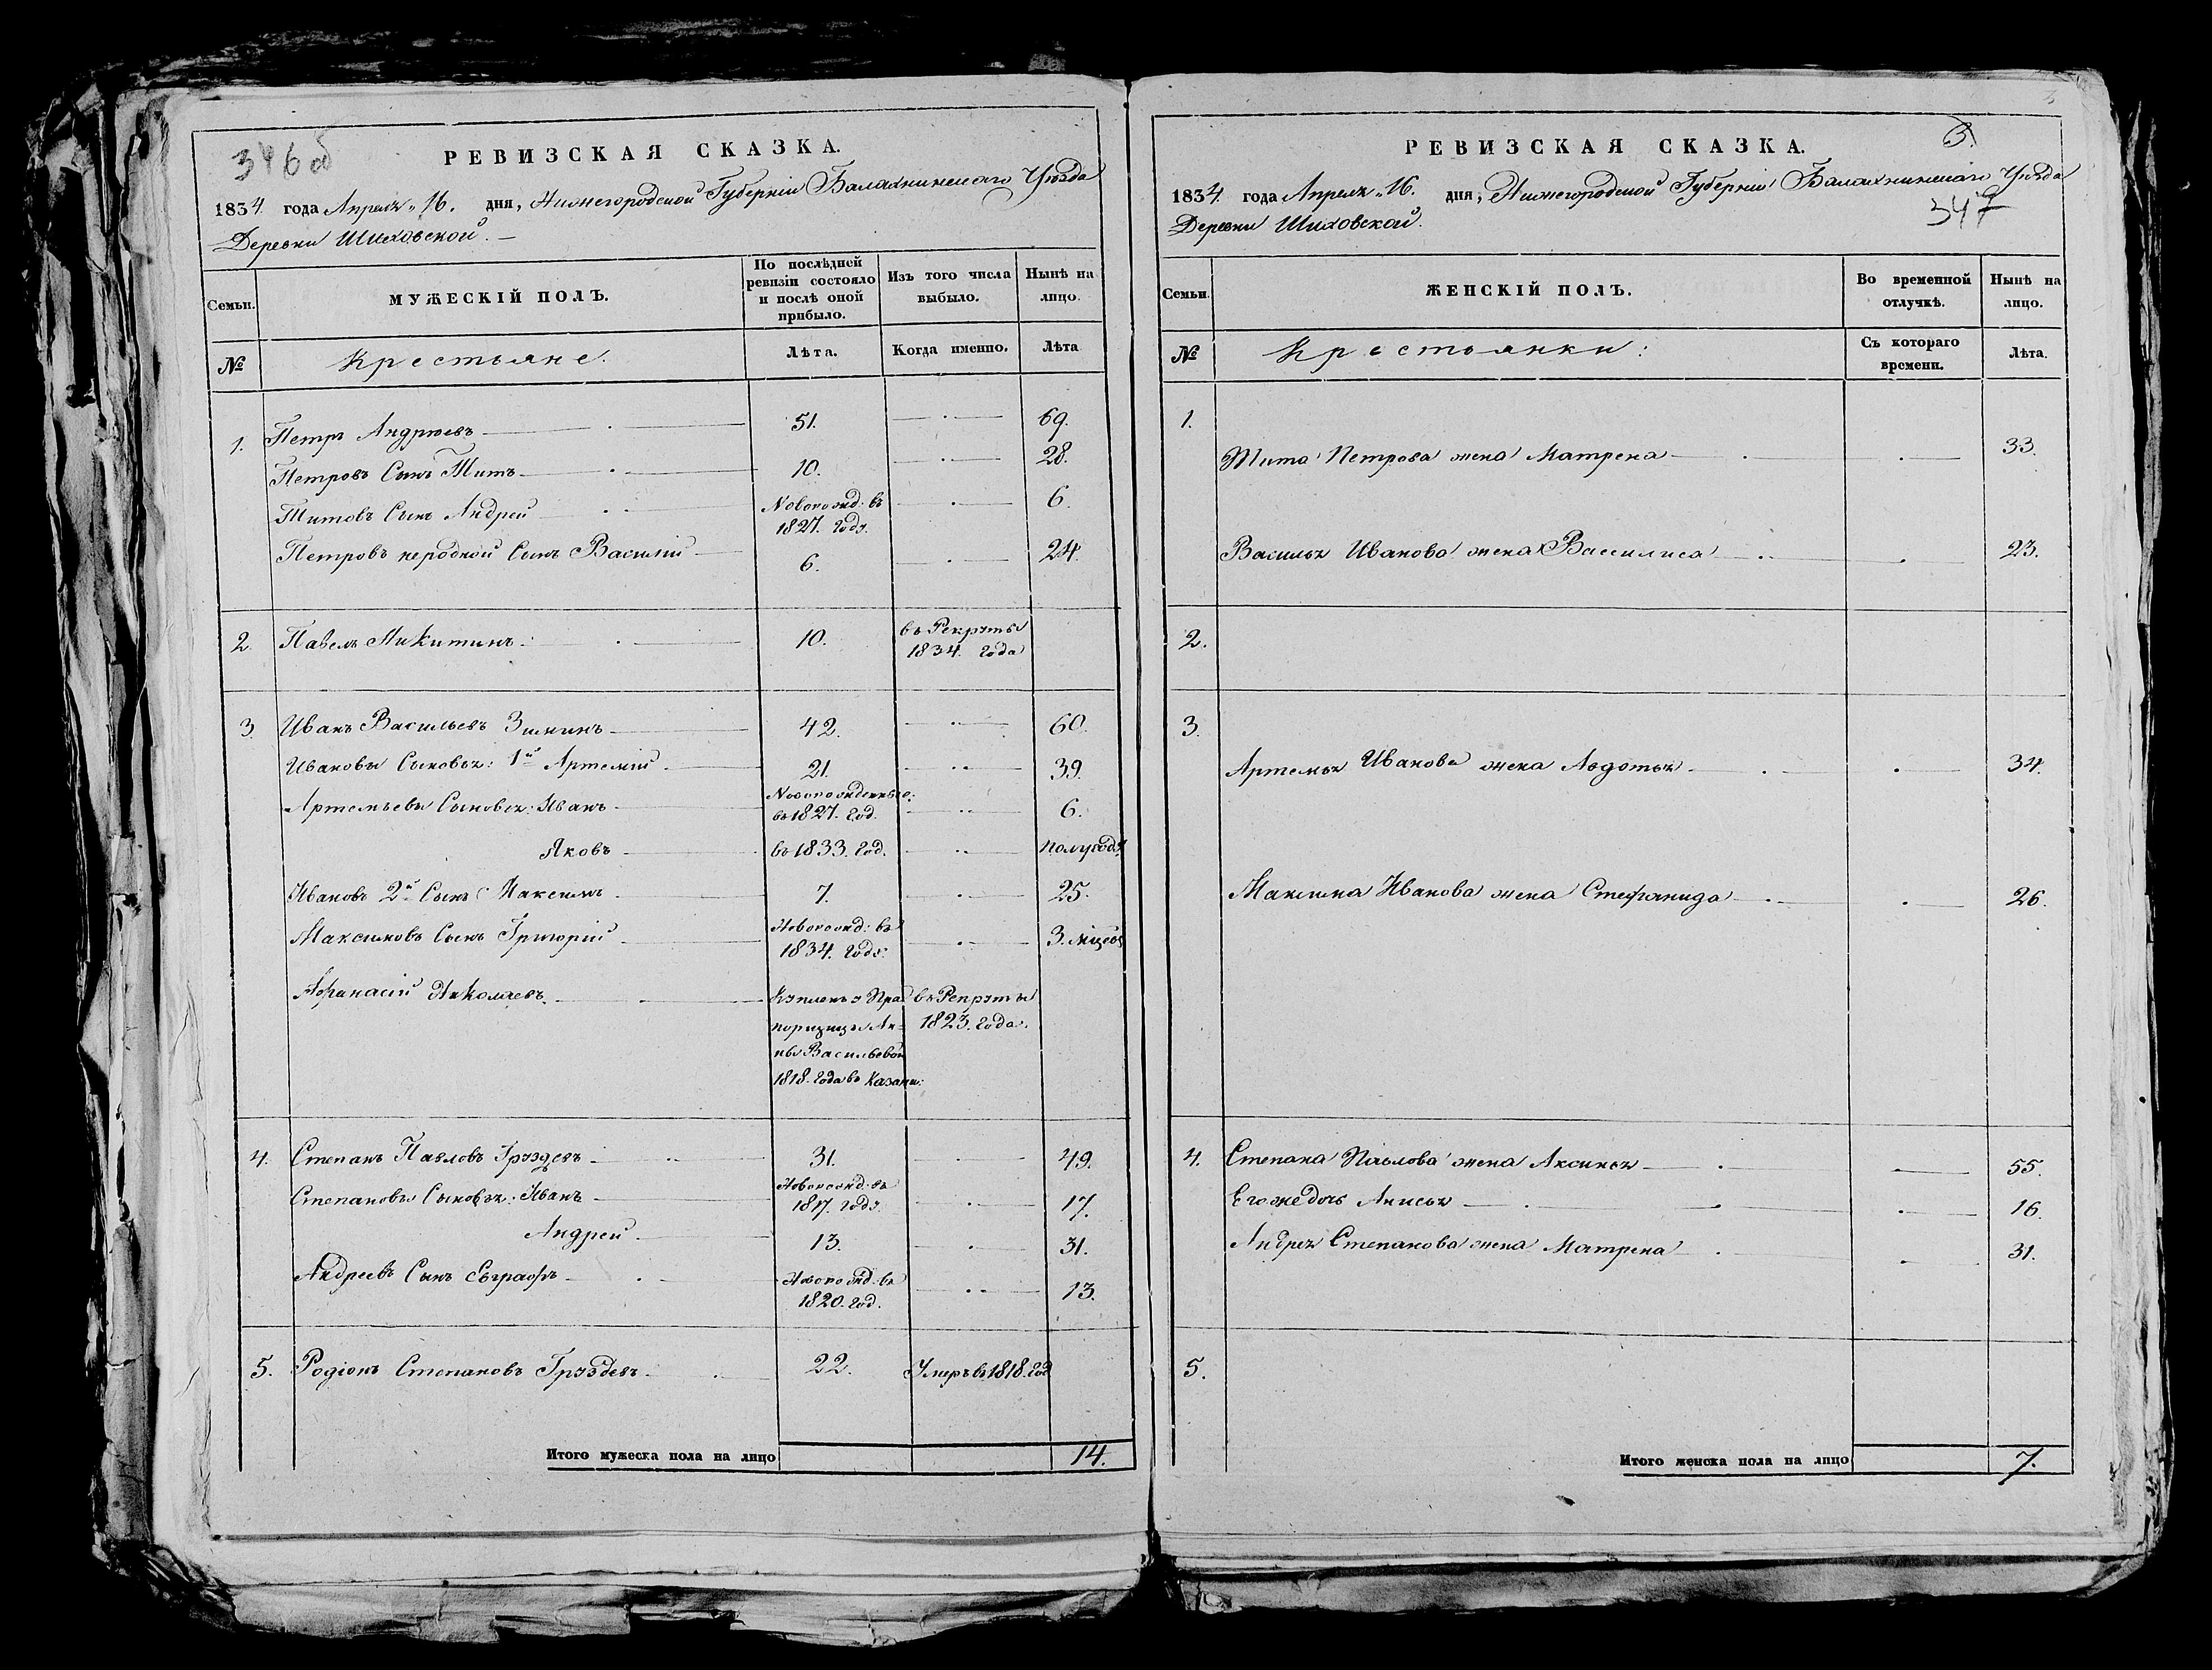 346 об
РЕВИЗСКАЯ СКАЗКА.
1834 года Апреля „16. дня, Нижегородской Губернии Балахнинскаго Уѣзда
Деревни Шиховской. —
Семьи. МУЖЕСКІЙ ПОЛЪ. По послѣдней ревизіи состояло и послѣ оной прибыло. Изъ того числа выбыло. Нынѣ на лицо.
№ Крестьяне. Лѣта. Когда именно. Лѣта
1. Петръ Андреевъ 51. 69.
Петровъ Сынъ Титъ 10. 28.
Титовъ Сынъ Андрей Новорожд: въ 1827. Году. 6.
Петровъ неродной Сынъ Василий 6. 24.
2. Павелъ Никитинъ. 10. въ Рекруты 1834. Года
3 Иванъ Васильевъ Зиминъ 42. 60.
Ивановы Сыновья: 1й Артемий 21. 39.
Артемьевы Сыновья: Иванъ Новорожденные: въ 1827. Год. 6.
Яковъ въ 1833. Год. полугоду
Ивановъ 2й Сынъ Максимъ 7. 25.
Максимовъ Сынъ Григорий Новорожд: въ 1834. Году: 3. мѣцовъ
Афанасий Николаевъ. Купленъ у Прапорщицы Анны Васильевой 1818. Года въ Казани: въ Рекруты 1823. Года.
4. Степанъ Павловъ Груздевъ 31. 49.
Степановы Сыновья: Иванъ Новорожд: въ 1817. Году. 17.
Андрей 13. 31.
Андреевъ Сынъ Евграфъ Новорожд: въ 1820. Год. 13.
5. Родіонъ Степановъ Груздевъ 22. Умеръ въ 1818. Год
Итого мужеска пола на лицо 14.
3.
РЕВИЗСКАЯ СКАЗКА.
1834. года Апреля „16. дня, Нижегородской Губерніи Балахнинскаго Уѣзда
347
Деревни Шиховской.
Семьи. ЖЕНСКІЙ ПОЛЪ. Во временной отлучкѣ. Нынѣ на лицо.
№ Крестьянки: Съ котораго времени. Лѣта.
1.
Тита Петрова жена Матрена 33.
Василья Иванова жена Василиса 23.
2.
3.
Артемья Иванова жена Авдотья 34.
Максима Иванова жена Стефанида 26.
4. Степана Павлова жена Аксинья 55.
Его же дочь Анисья 16.
Андрея Степанова жена Матрена 31.
5.
Итого женска пола на лицо 7.